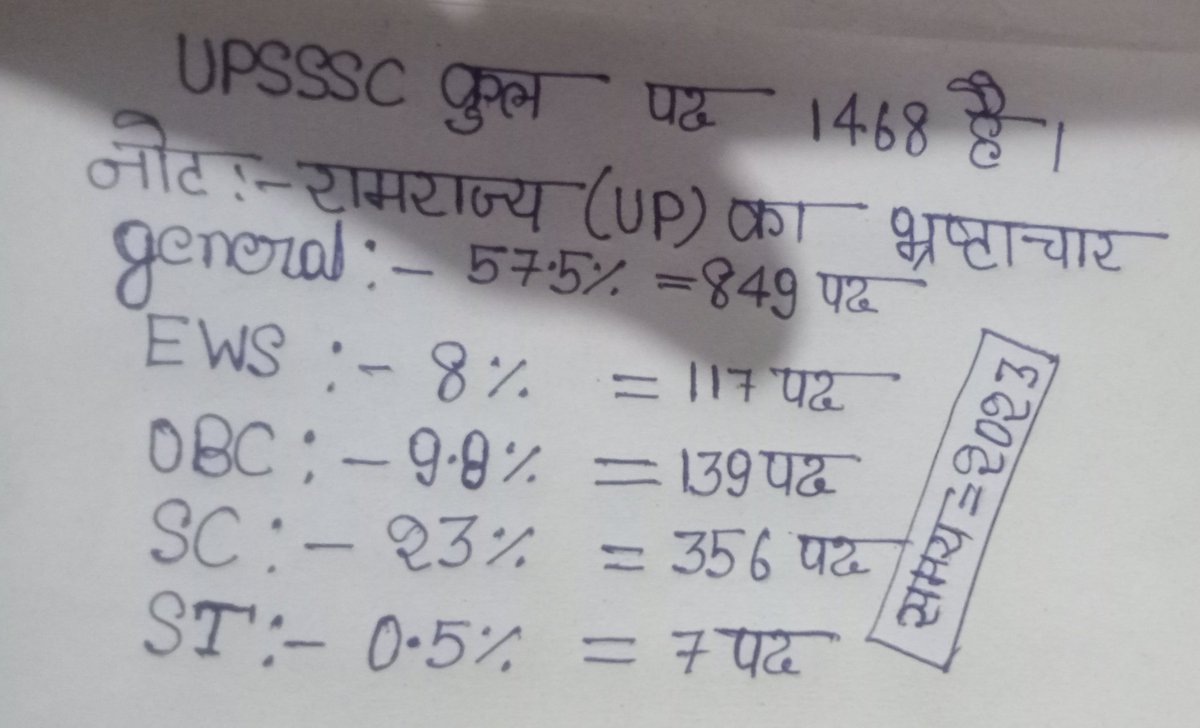 UPSSSC कुल पद 1468 है।
नोट:- रामराज्य (UP) का भ्रष्टाचार
general:- 57.5% = 849 पद
EWS :- 8% = 117 पद
OBC :- 9.8% = 139 पद
SC :- 23% = 356 पद
ST :- 0.5% = 7 पद
समय = २०२३